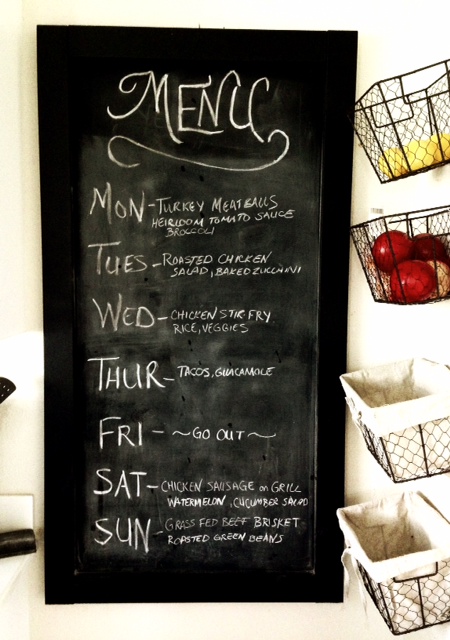 MENU
MON - TURKEY MEATBALLS
HEIRLOOM TOMATO SAUCE
BROCCOLI
TUES - ROASTED CHICKEN
SALAD, BAKED ZUCCHINI
WED - CHICKEN STIR-FRY
RICE, VEGGIES
THUR - TACOS, GUACAMOLE
FRI - ~ GO OUT ~
SAT - CHICKEN SAUSAGE on GRILL
WATERMELON, CUCUMBER SALAD
SUN - GRASS FED BEEF BRISKET
ROASTED GREEN BEANS